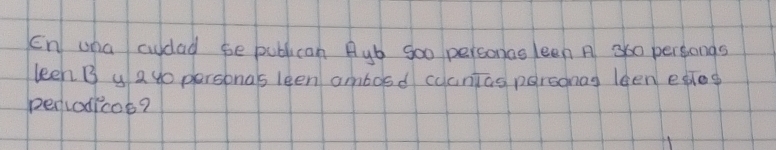 En una cudad se publican A y b 500 personas leen A 360 personas
leen B y 240 personas leen ambosd cuantas personas leen estos
periodicos?